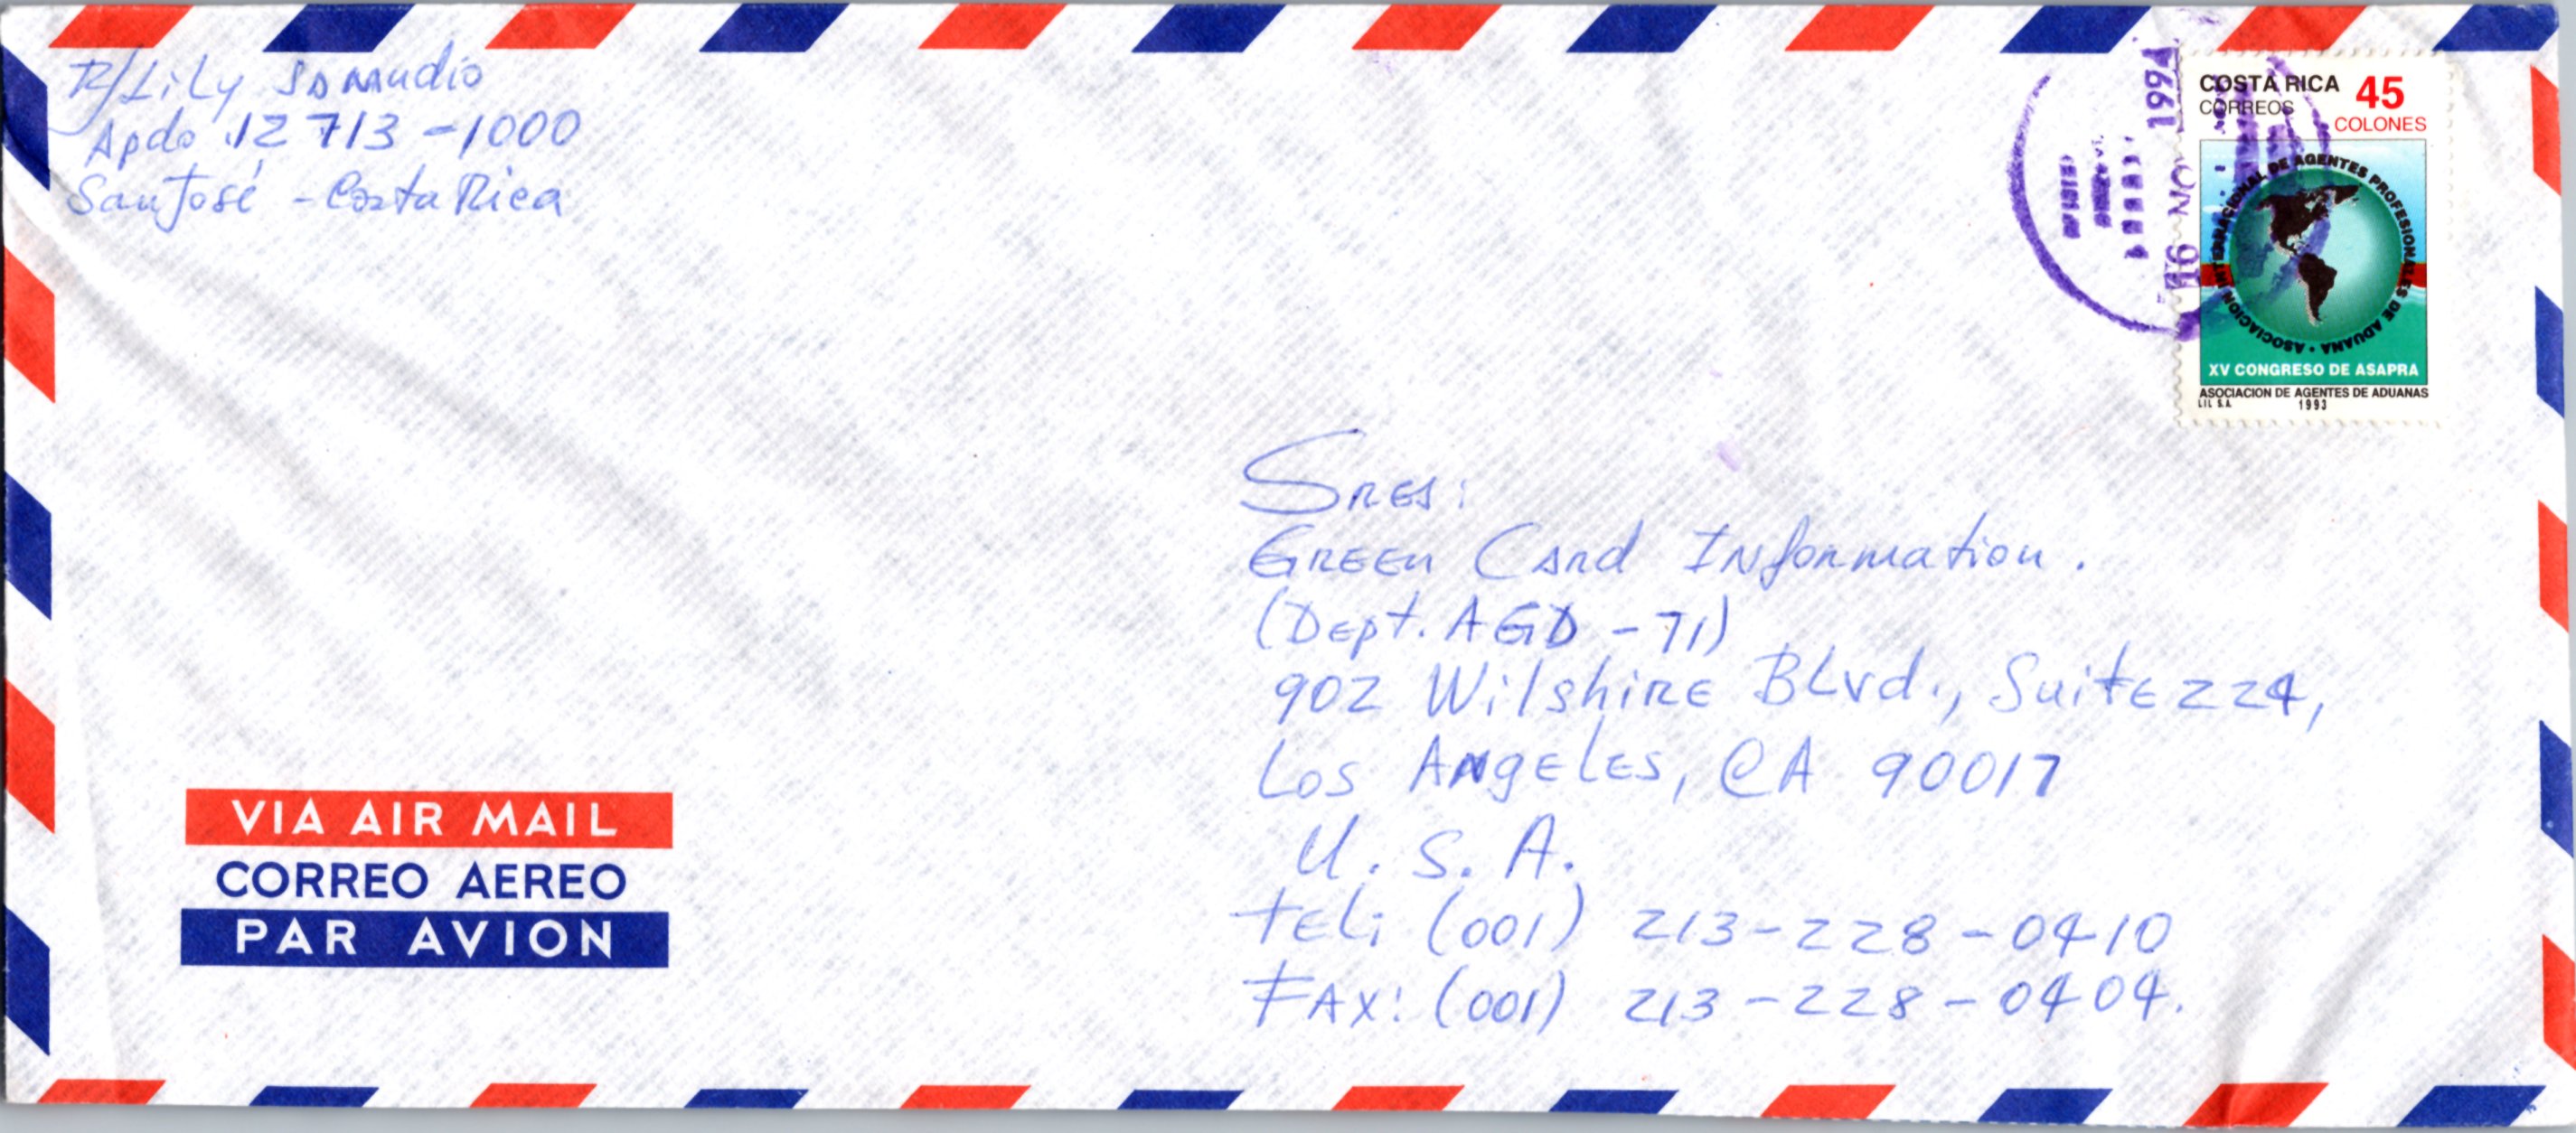 R/Lily Samudio
Apdo 12713-1000
San José - Costa Rica
16 NO 1994
COSTA RICA 45
CORREOS
COLONES
ASOCIACION INTERNACIONAL DE AGENTES PROFESIONALES DE ADUANA •
XV CONGRESO DE ASAPRA
ASOCIACION DE AGENTES DE ADUANAS
LIL S.A. 1993
SRES:
GREEN CARd INformation.
(Dept. AGD - 71)
902 WilshiRE BLvd., SuitE 224,
Los ANgELES, CA 90017
U. S. A.
tEL: (001) 213-228-0410
FAX: (001) 213-228-0404.
VIA AIR MAIL
CORREO AEREO
PAR AVION